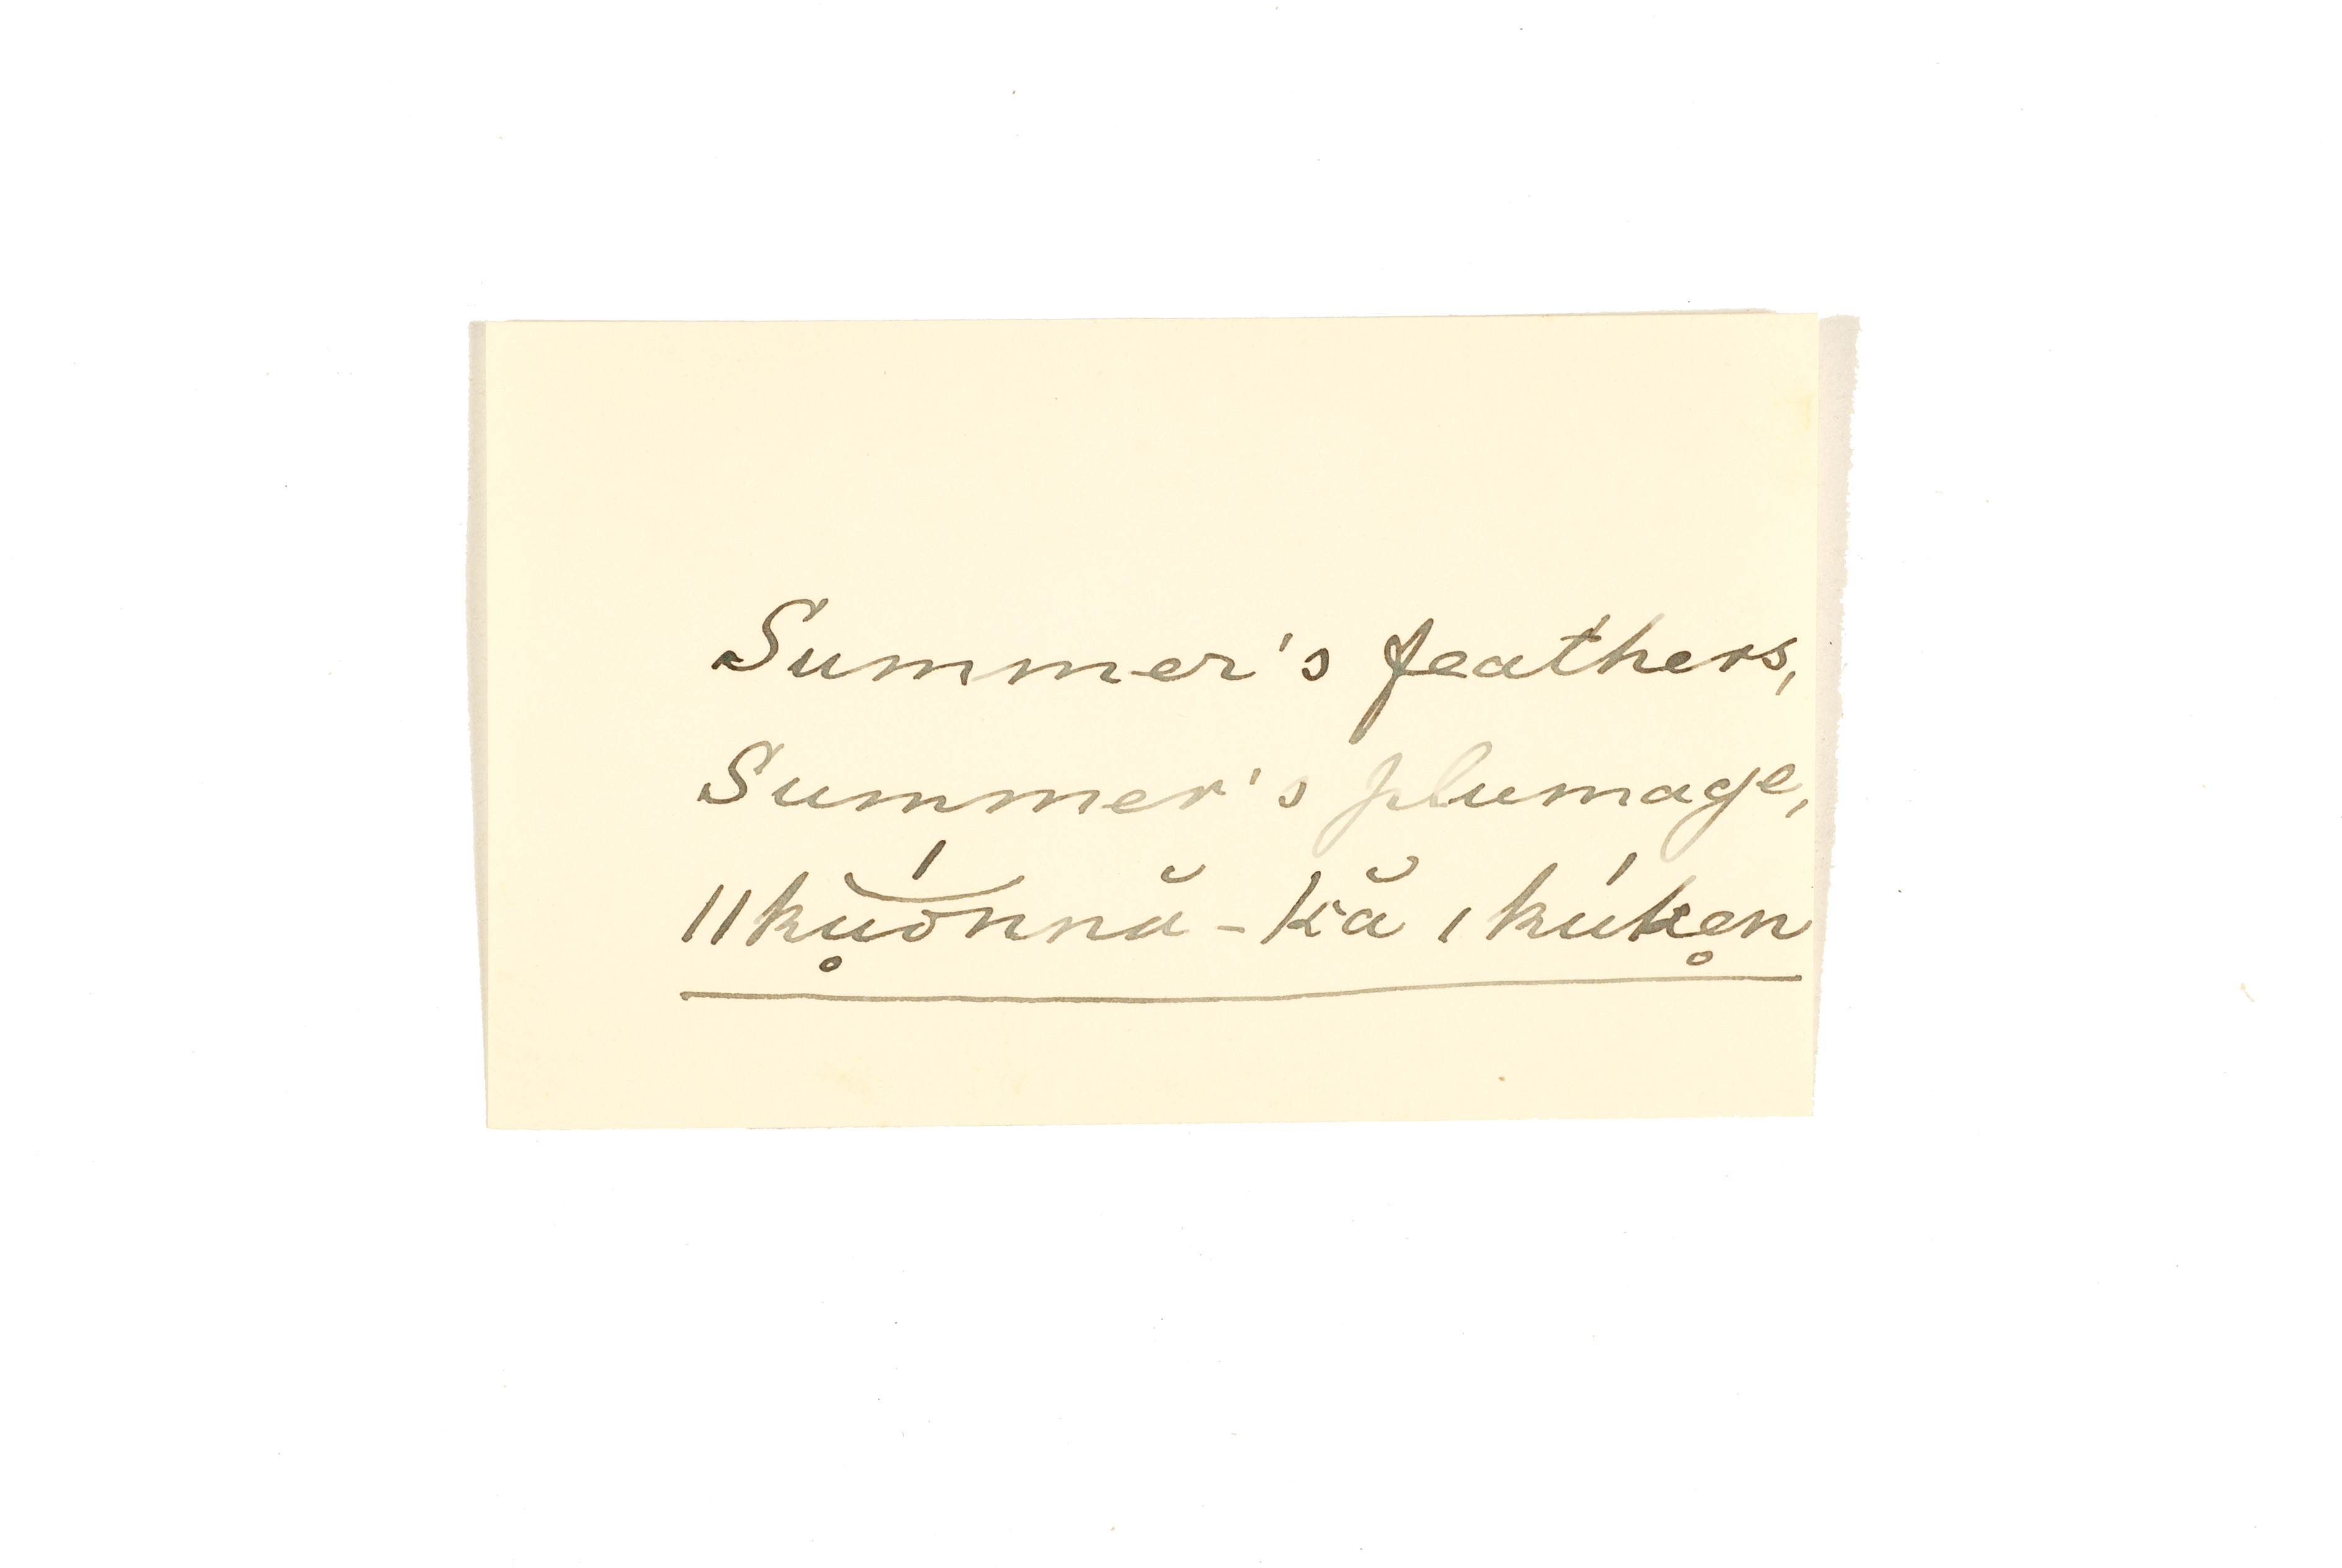 Summer's feathers,
Summer's plumage,
||kŭ̥ó͝nnă-kă |kúke̥n